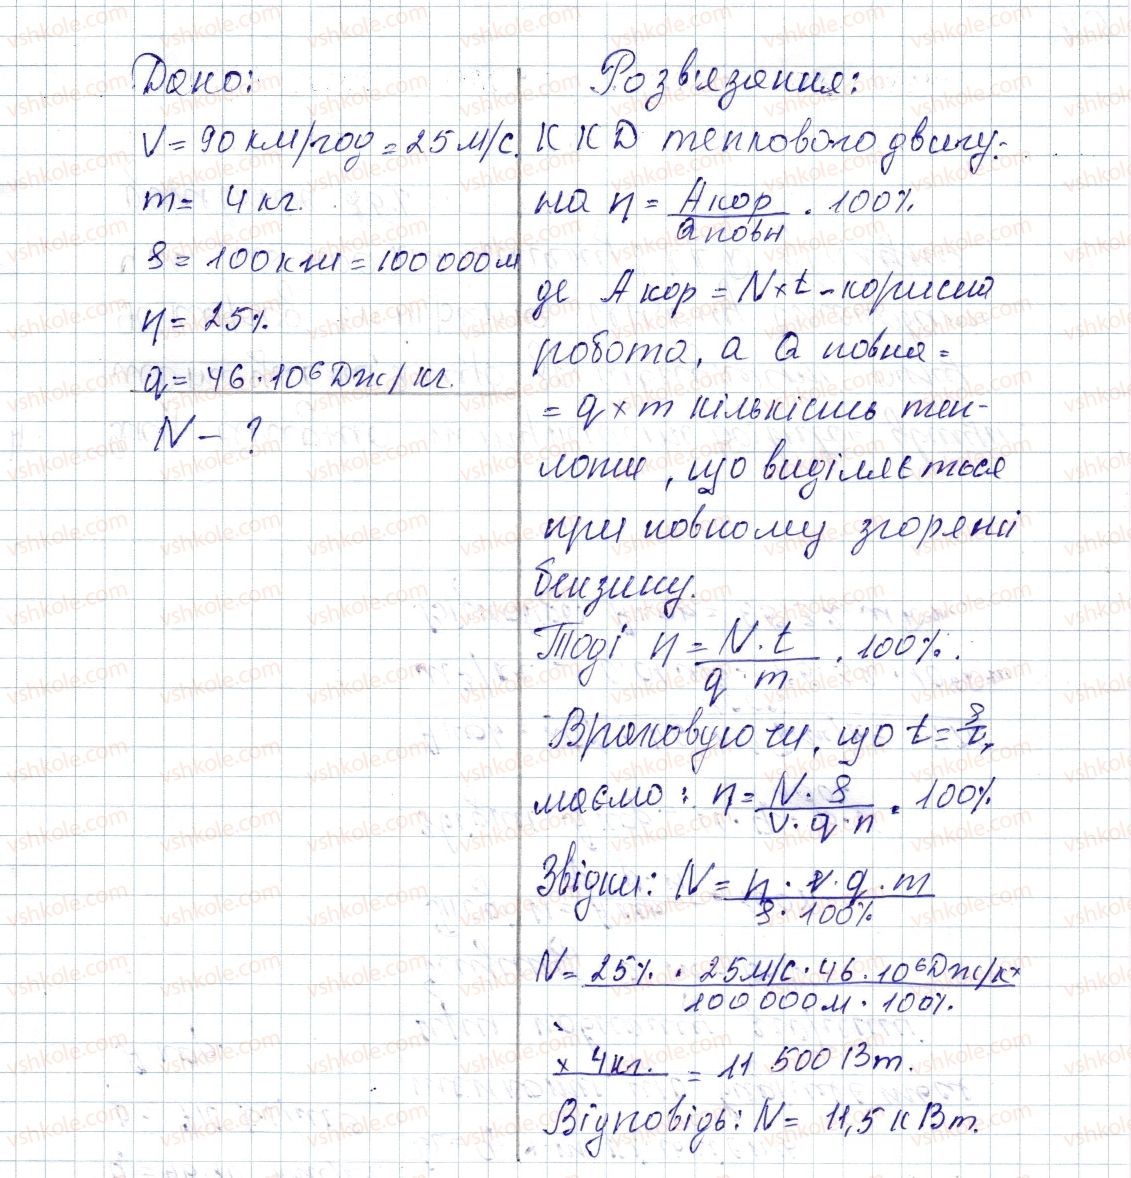 Дано:
V = 90 км/год = 25 м/с.
m = 4 кг.
S = 100 км = 100 000 м
η = 25%
q = 46 · 10⁶ Дж/кг.
N - ?
Розв'язання:
ККД теплового двигу-
на η = Aкор / Qповн · 100%
де Aкор = N×t - корисна
робота, а Q повна =
= q × m кількість теп-
лоти, що виділяється
при повному згорянні
бензину.
Тоді η = N · t / q · m · 100%.
Враховуючи, що t = S/v,
маємо: η = N · S / v · q · m · 100%
Звідки: N = η · v · q · m / S · 100%
N = 25% · 25 м/с · 46 · 10⁶ Дж/к× / 100 000 м · 100%
× 4 кг. = 11 500 Вт.
Відповідь: N = 11,5 кВт.